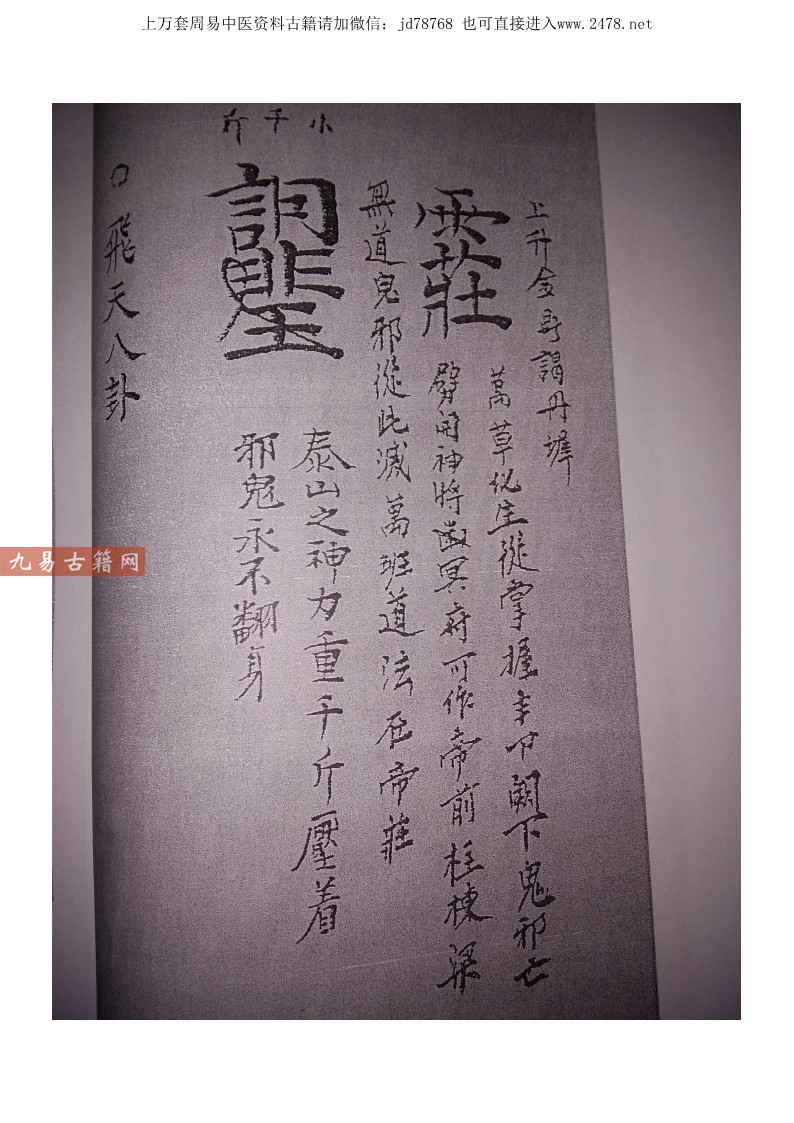 上万套周易中医资料古籍请加微信：jd78768 也可直接进入www.2478.net
上升金 謁丹墀
萬草化生從掌握 闕下鬼邪亡
雲莊
劈開神將 冥府可作帝前柱棟梁
無道鬼邪從此滅萬班道法 帝莊
小千斤
泰山之神力重千斤壓着
邪鬼永不翻身
飛天八卦
九易古籍网